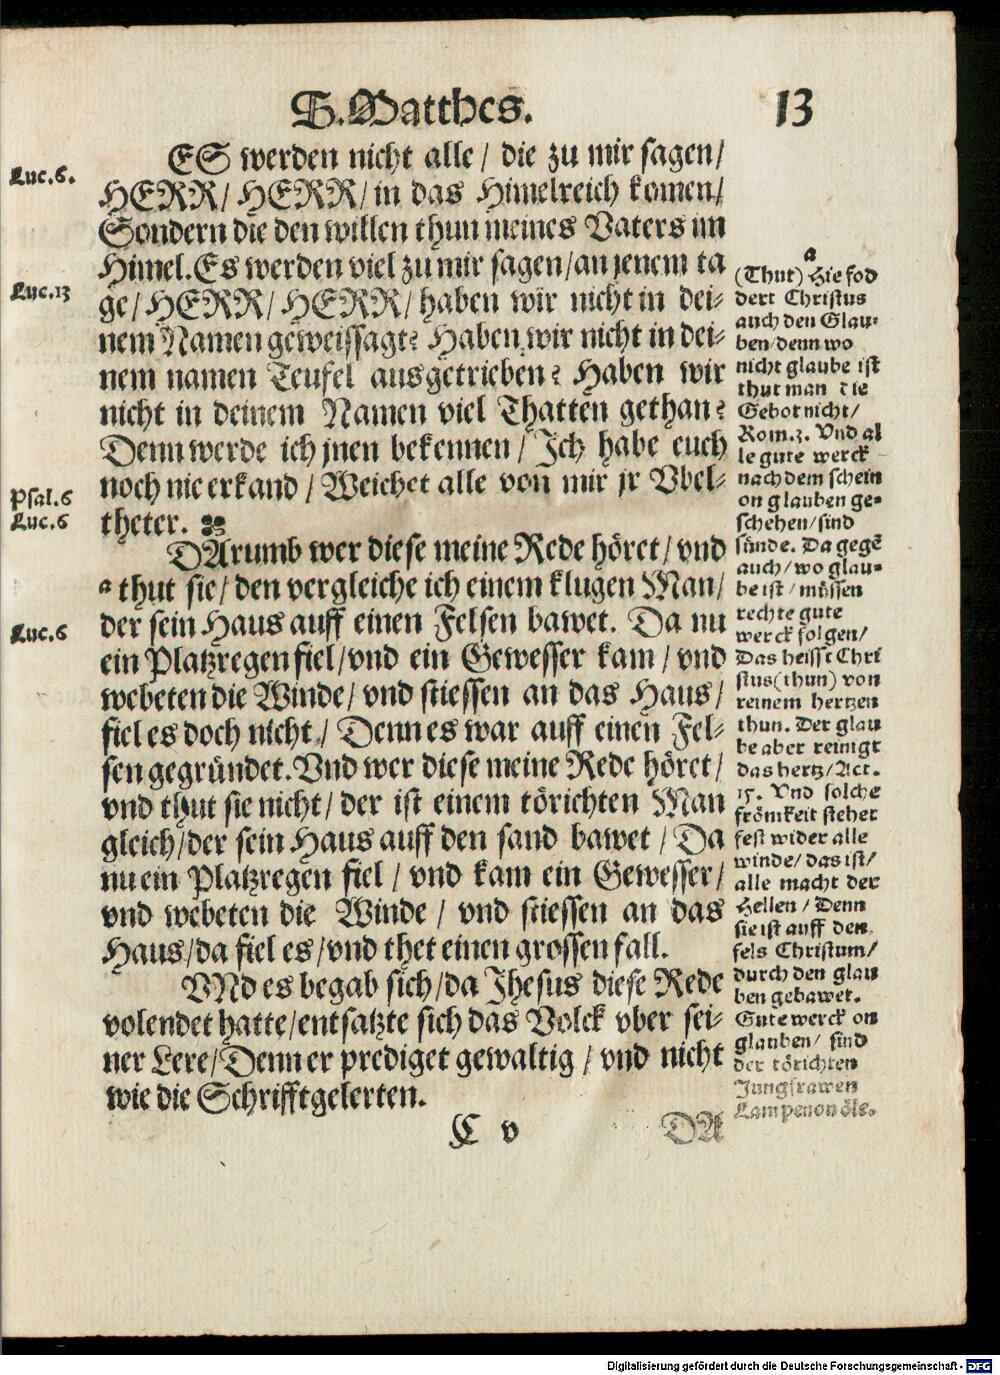 S. Matthes. 13
Luc. 6.
ES werden nicht alle / die zu mir sagen /
HERR / HERR / in das Himelreich komen /
Sondern die den willen thun meines Vaters im
Himel. Es werden viel zu mir sagen / an jenem ta
Luc. 13
ge / HERR / HERR / haben wir nicht in dei⸗
nem Namen geweissagt? Haben wir nicht in dei⸗
nem namen Teufel ausgetrieben? Haben wir
nicht in deinem Namen viel Thatten gethan?
Denn werde ich jnen bekennen / Ich habe euch
Psal. 6
Luc. 6
noch nie erkand / Weichet alle von mir jr Vbel⸗
theter.
DArumb wer diese meine Rede höret / vnd
a thut sie / den vergleiche ich einem klugen Man /
Luc. 6
der sein Haus auff einen Felsen bawet. Da nu
ein Platzregen fiel / vnd ein Gewesser kam / vnd
webeten die Winde / vnd stiessen an das Haus /
fiel es doch nicht / Denn es war auff einen Fel⸗
sen gegründet. Vnd wer diese meine Rede höret /
vnd thut sie nicht / der ist einem törichten Man
gleich / der sein Haus auff den sand bawet / Da
nu ein Platzregen fiel / vnd kam ein Gewesser /
vnd webeten die Winde / vnd stiessen an das
Haus / da fiel es / vnd thet einen grossen fall.
VNd es begab sich / da Jhesus diese Rede
volendet hatte / entsatzte sich das Volck vber sei⸗
ner Lere / Denn er prediget gewaltig / vnd nicht
wie die Schrifftgelerten.
a
(Thut) Hie fod
dert Christus
auch den Glau⸗
ben / denn wo
nicht glaube ist
thut man die
Gebot nicht /
Rom. 3. Vnd al
le gute werck
nach dem schein
on glauben ge⸗
schehen / sind
sünde. Da gegē
auch / wo glau⸗
be ist / müssen
rechte gute
werck folgen /
Das heisst Chri
stus (thun) von
reinem hertzen
thun. Der glau
be aber reinigt
das hertz / Act.
15. Vnd solche
frömkeit stehet
fest wider alle
winde / das ist /
alle macht der
Hellen / Denn
sie ist auff den
fels Christum /
durch den glau
ben gebawet.
Gute werck on
glauben / sind
der törichten
Jungfrawen
Lampen on öle.
C v DA
Digitalisierung gefördert durch die Deutsche Forschungsgemeinschaft - DFG